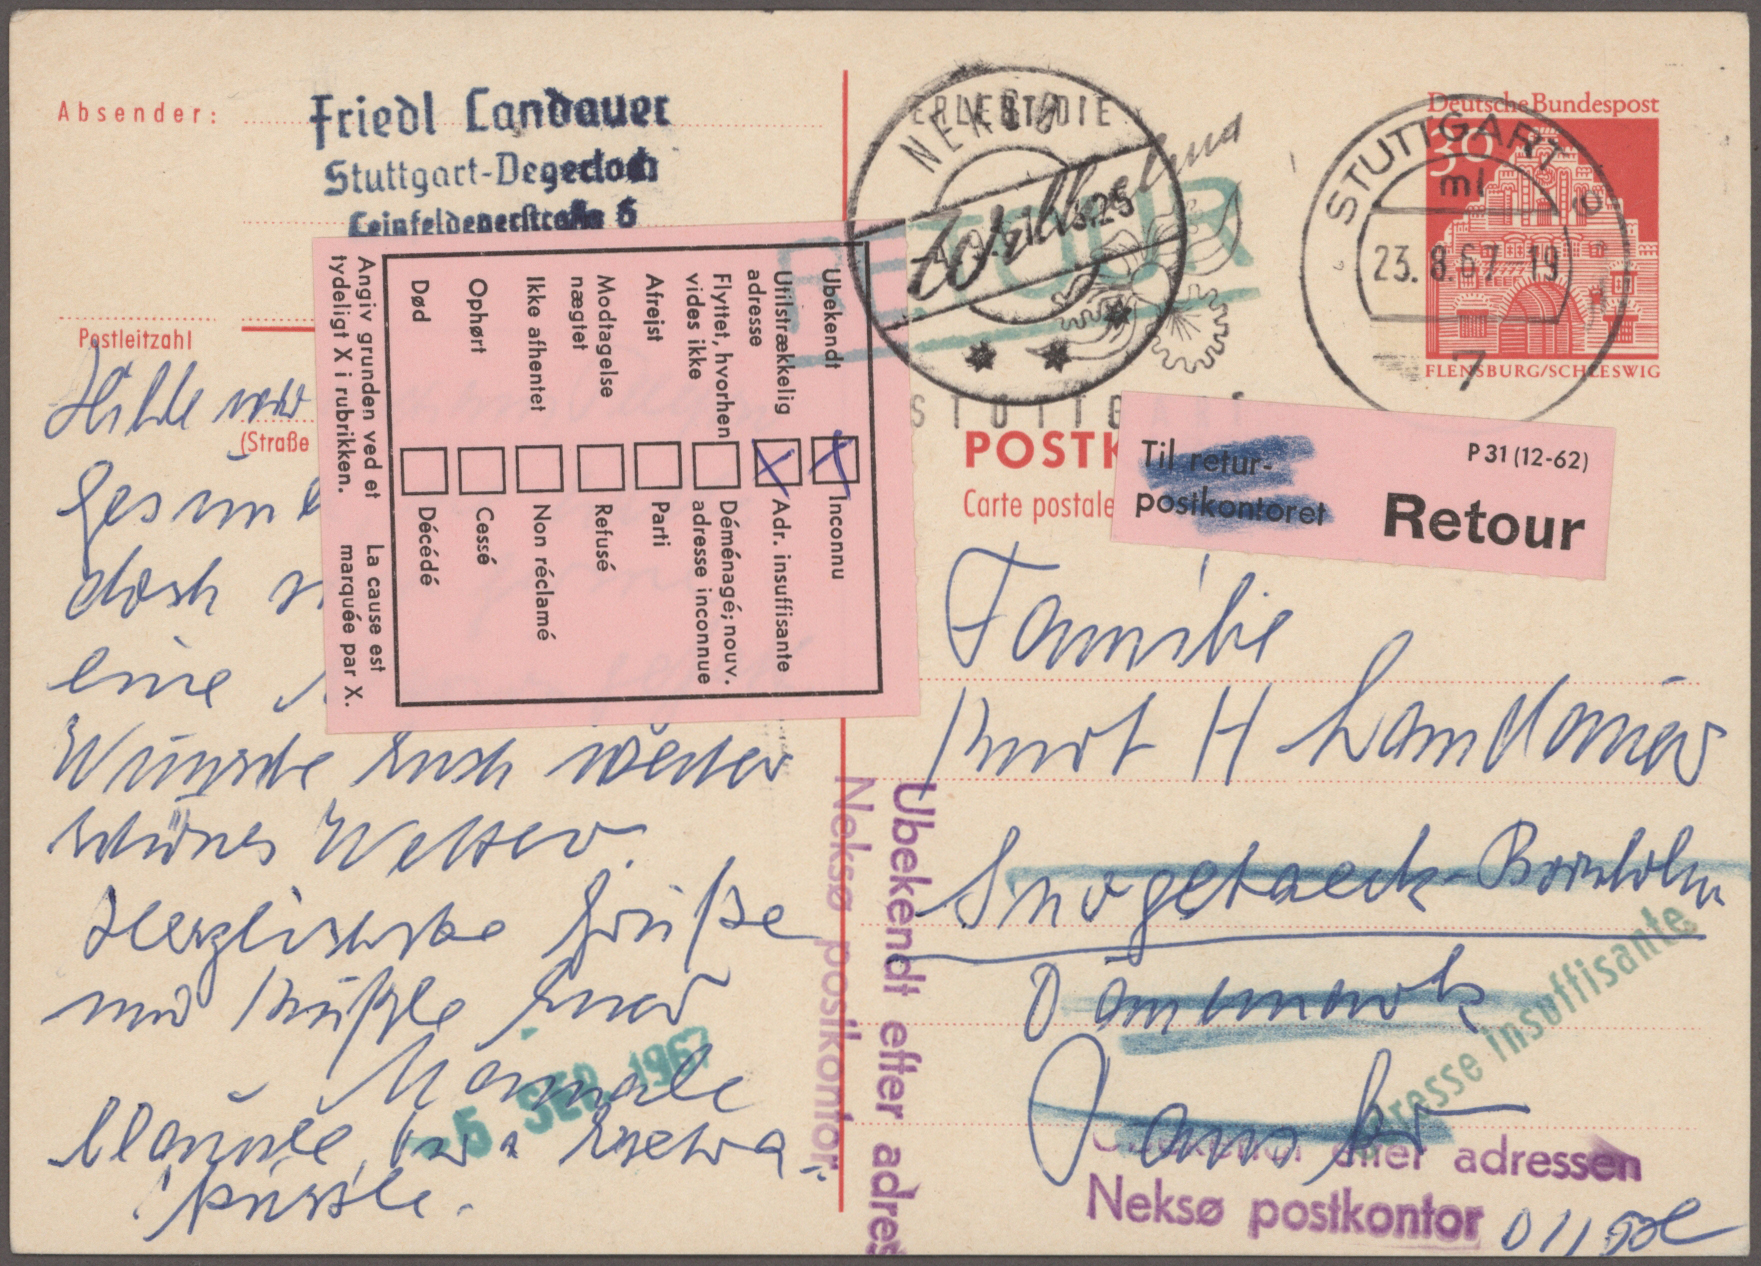 Absender:
Friedl Landauer
Stuttgart-Degerloch
Leinfeldenerstraße 6
Postleitzahl
(Straße
Hilde war
gesund
doch
eine
Wünsche Euch weiter
schönes Wetter.
Herzlichste Grüße
und Küßle Eure
Mamale
5 SEP. 1967
Angiv grunden ved et
tydeligt X i rubrikken.
La cause est
marquée par X.
Ubekendt X Inconnu
Utilstrækkelig
adresse X Adr. insuffisante
Flyttet, hvorhen
vides ikke
Déménagé; nouv.
adresse inconnue
Afrejst Parti
Modtagelse
nægtet Refusé
Ikke afhentet Non réclamé
Ophørt Cessé
Død Décédé
ERLEBT DIE
NEKSØ
RETOUR
STUTTGART
Deutsche Bundespost
30
FLENSBURG/SCHLESWIG
STUTTGART 9
ml
23.8.67-19
7
POSTK
Carte postale
Til retur-
postkontoret
P 31 (12-62)
Retour
Familie
Kurt H Landauer
Snogebaeck-Bornholm
Dänemark
Adresse insuffisante
Ubekendt efter adres
Neksø postkontor
Ubekendt efter adressen
Neksø postkontor